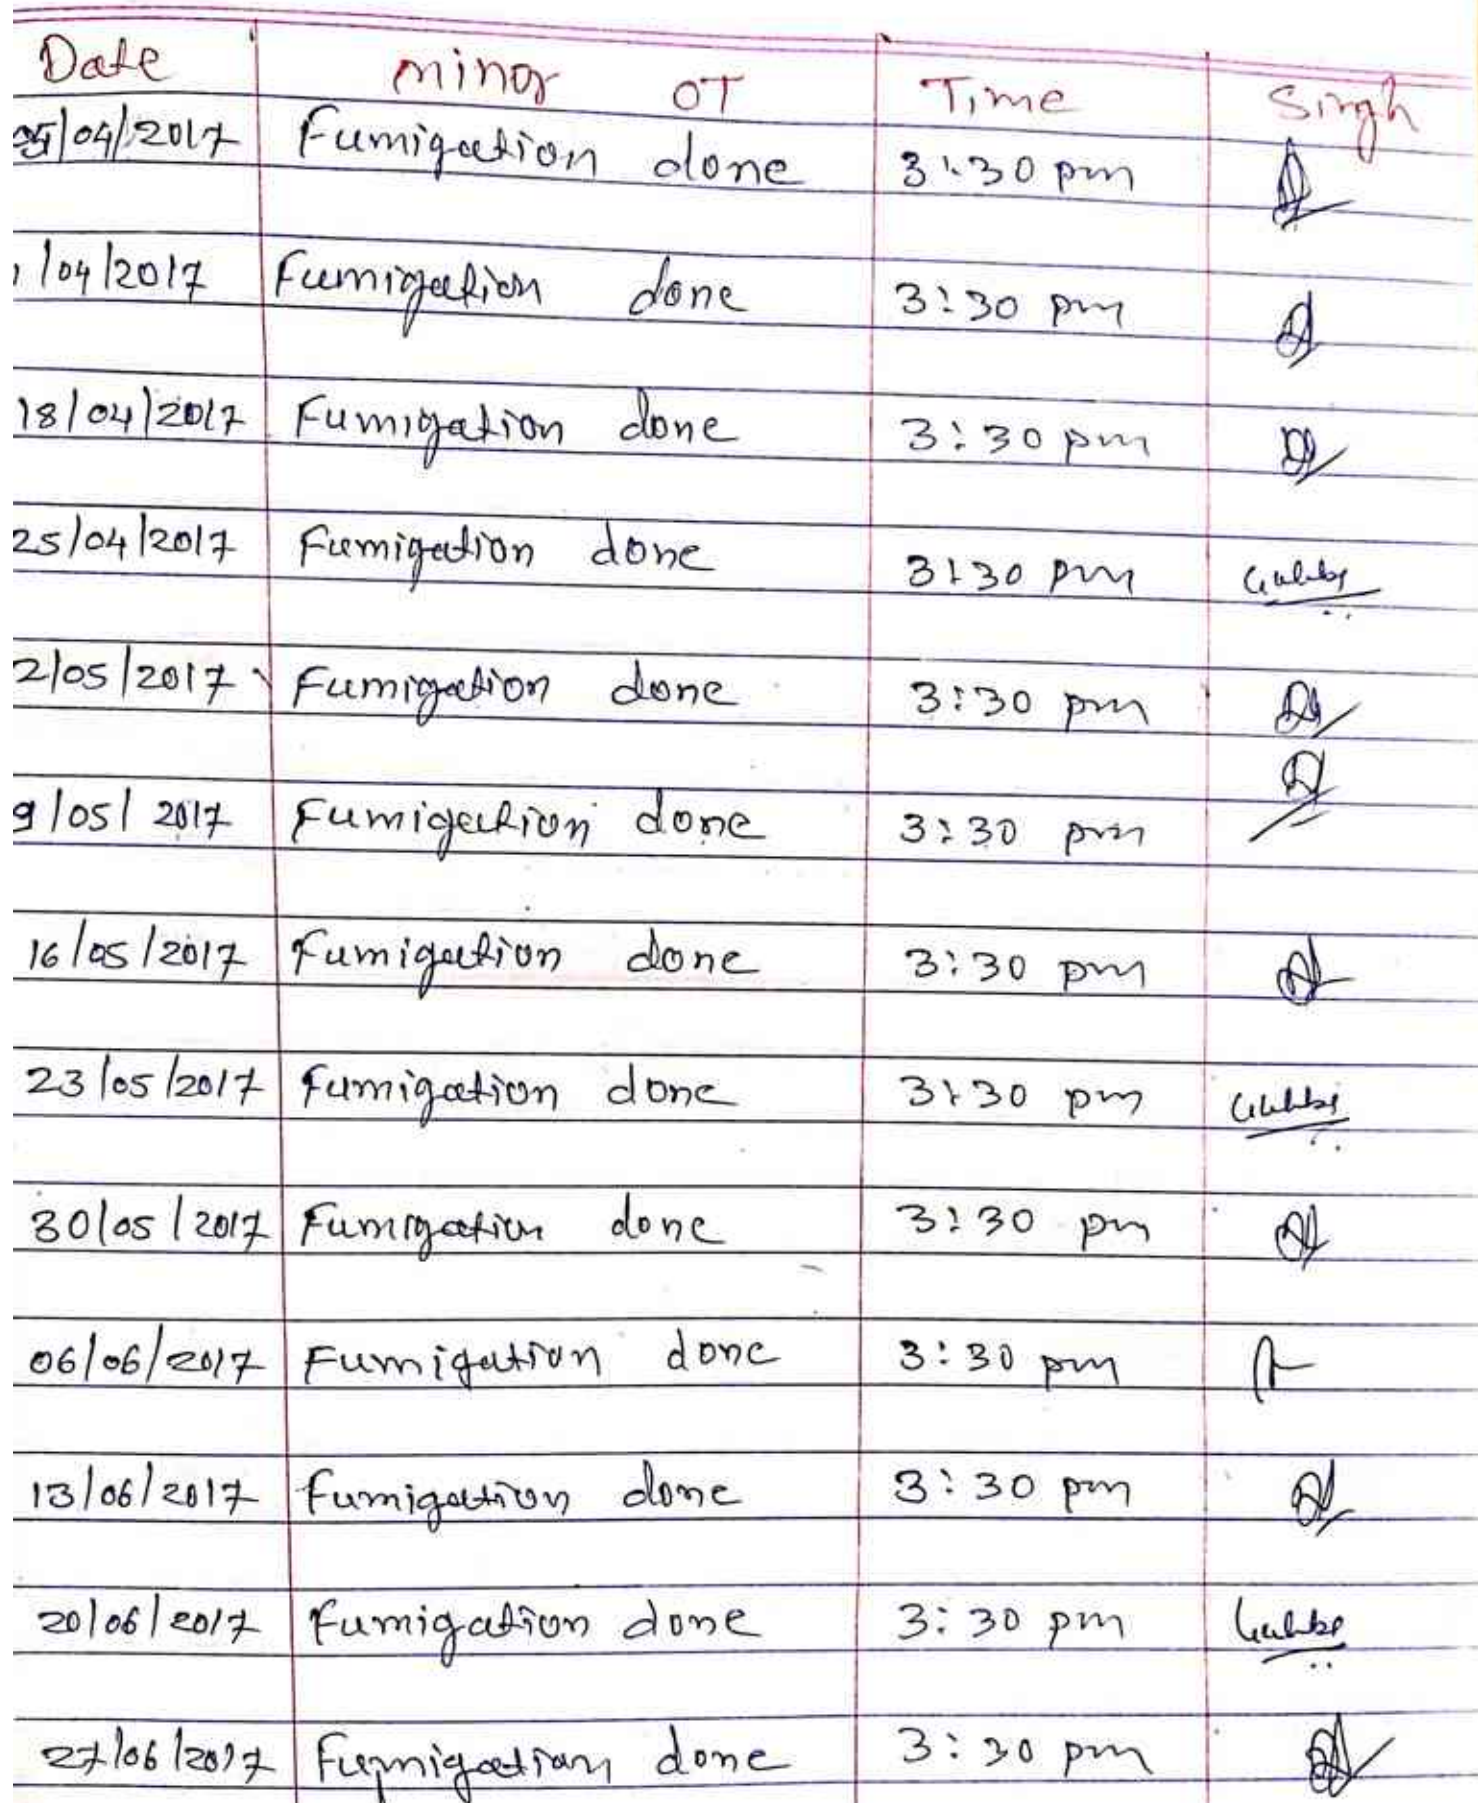 Date minor OT Time Singh
05/04/2017 Fumigation done 3:30 pm
1/04/2017 Fumigation done 3:30 pm
18/04/2017 Fumigation done 3:30 pm
25/04/2017 Fumigation done 3:30 pm
2/05/2017 Fumigation done 3:30 pm
9/05/2017 Fumigation done 3:30 pm
16/05/2017 Fumigation done 3:30 pm
23/05/2017 Fumigation done 3:30 pm
30/05/2017 Fumigation done 3:30 pm
06/06/2017 Fumigation done 3:30 pm
13/06/2017 Fumigation done 3:30 pm
20/06/2017 Fumigation done 3:30 pm
27/06/2017 Fumigation done 3:30 pm